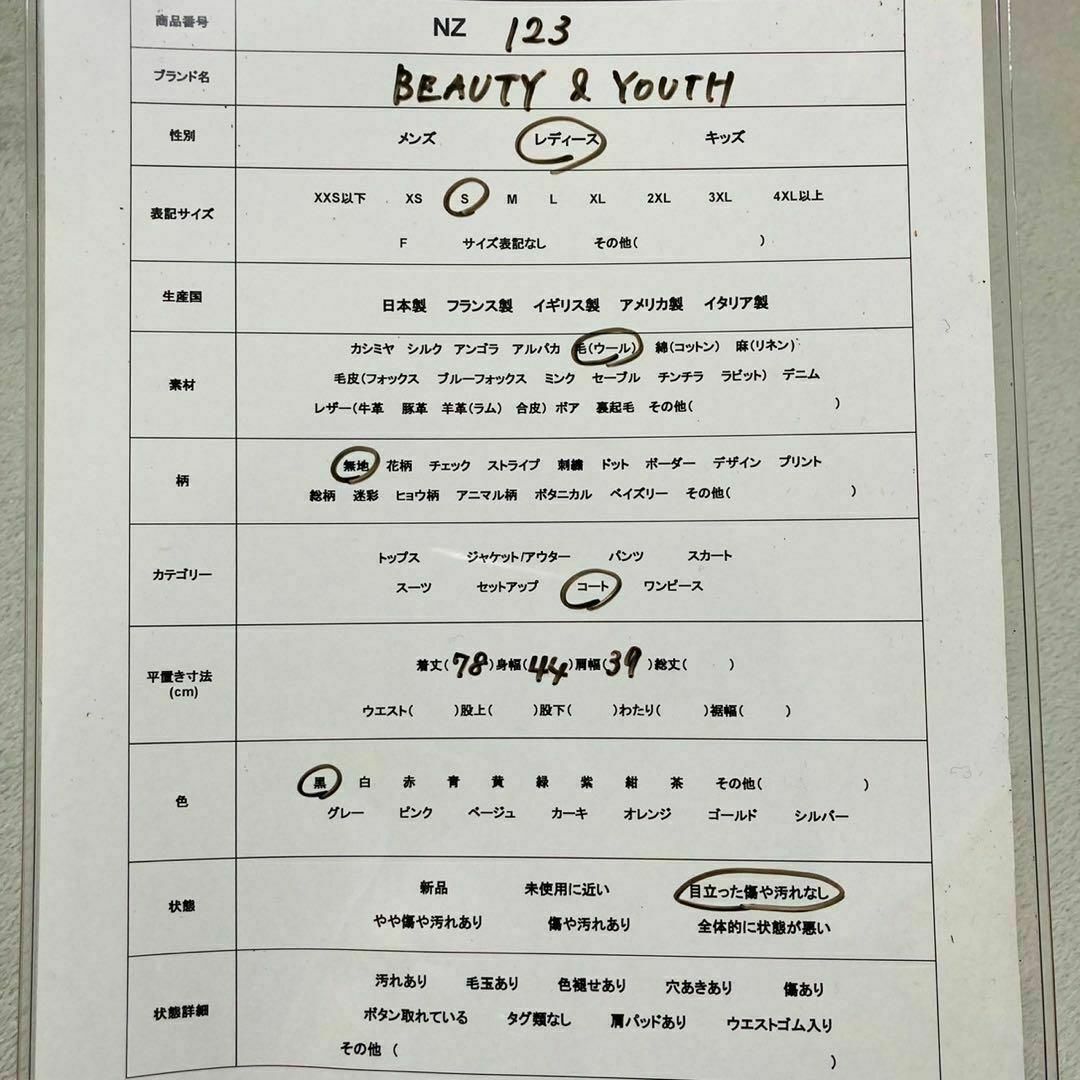 商品番号 NZ 123
ブランド名 BEAUTY & YOUTH
性別 メンズ レディース キッズ
表記サイズ
XXS以下 XS S M L XL 2XL 3XL 4XL以上
F サイズ表記なし その他( )
生産国 日本製 フランス製 イギリス製 アメリカ製 イタリア製
素材
カシミヤ シルク アンゴラ アルパカ 毛(ウール) 綿(コットン) 麻(リネン)
毛皮(フォックス ブルーフォックス ミンク セーブル チンチラ ラビット) デニム
レザー(牛革 豚革 羊革(ラム) 合皮) ボア 裏起毛 その他( )
柄
無地 花柄 チェック ストライプ 刺繍 ドット ボーダー デザイン プリント
総柄 迷彩 ヒョウ柄 アニマル柄 ボタニカル ペイズリー その他( )
カテゴリー
トップス ジャケット/アウター パンツ スカート
スーツ セットアップ コート ワンピース
平置き寸法
(cm)
着丈(78)身幅(44)肩幅(39)総丈( )
ウエスト( )股上( )股下( )わたり( )裾幅( )
色
黒 白 赤 青 黄 緑 紫 紺 茶 その他( )
グレー ピンク ベージュ カーキ オレンジ ゴールド シルバー
状態
新品 未使用に近い 目立った傷や汚れなし
やや傷や汚れあり 傷や汚れあり 全体的に状態が悪い
状態詳細
汚れあり 毛玉あり 色褪せあり 穴あきあり 傷あり
ボタン取れている タグ類なし 肩パッドあり ウエストゴム入り
その他 ( )